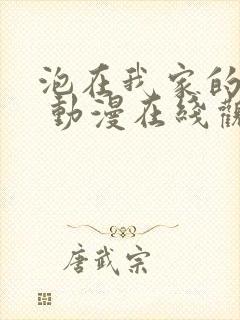 泡在我家的
動漫在綫觀
唐武宗